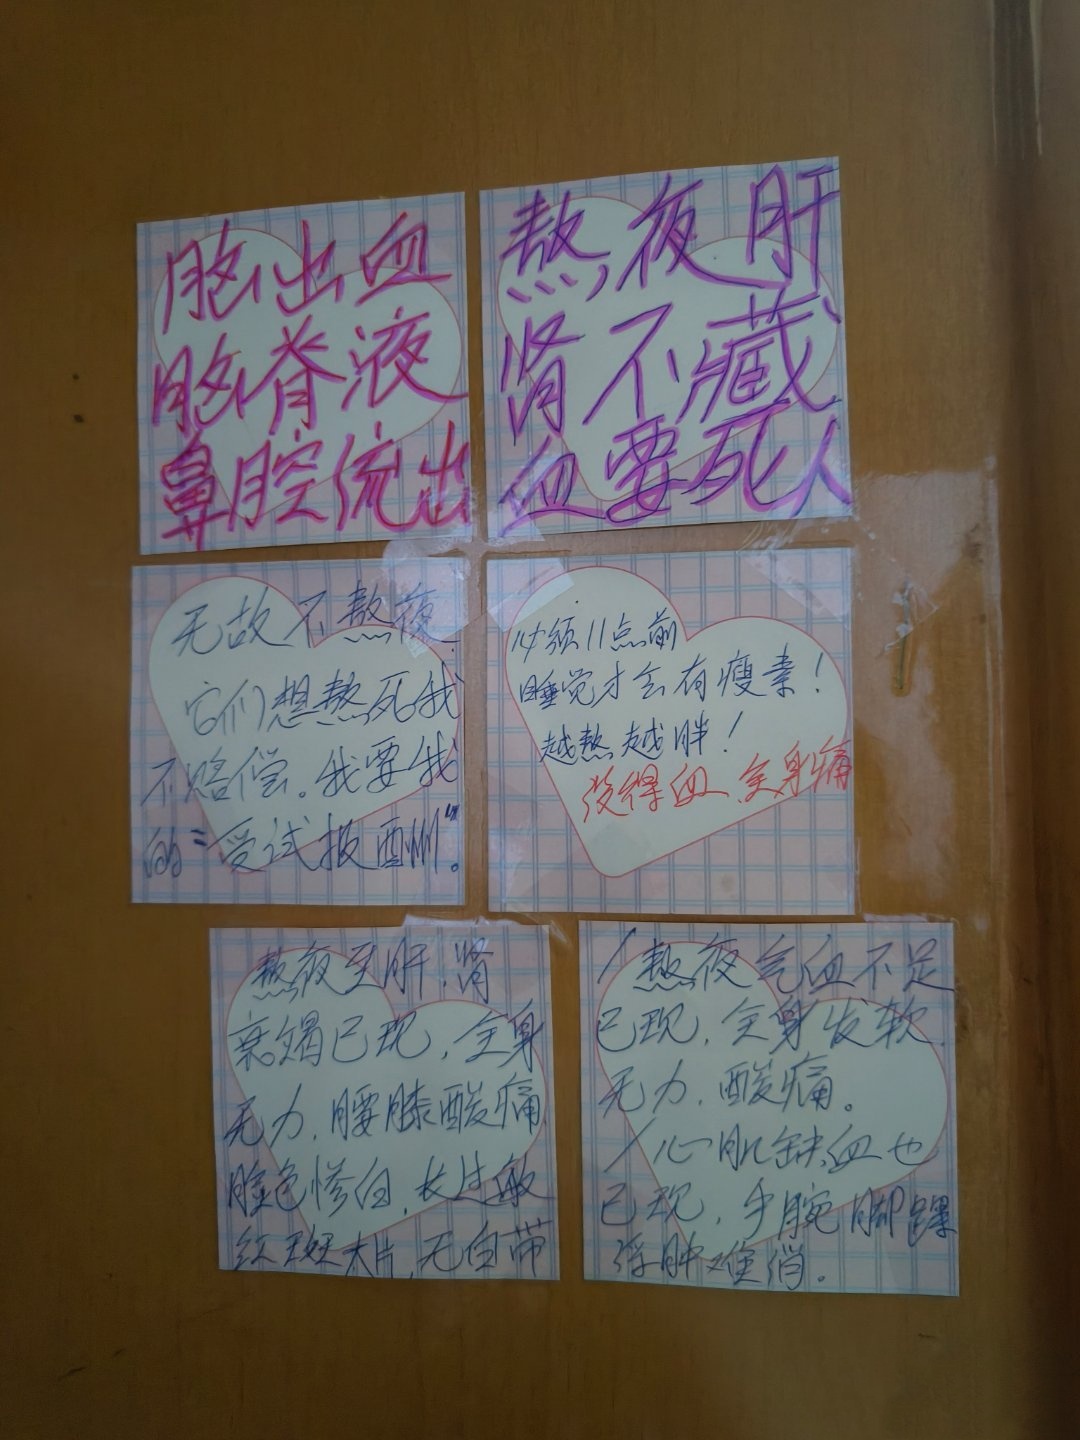 脑出血
脑脊液
鼻腔流出
熬夜肝
肾不藏
血要死人
无故不熬夜.
它们想熬死我
不赔偿。我要我
的“受试报酬”。
必须11点前
睡觉才会有瘦素！
越熬越胖！
没得血,全身痛
熬夜至肝.肾
衰竭已现,全身
无力,腰膝酸痛
脸色惨白,长过敏
红斑大片,无白带
/熬夜气血不足
已现,全身发软.
无力,酸痛。
/心肌缺血也
已现,手腕脚踝
浮肿难消。